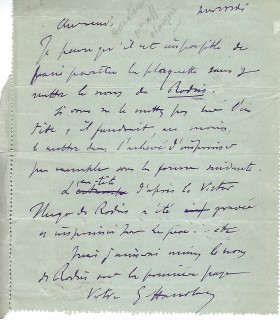 mardi
Cher ami,
Je pense qu'il est impossible de
faire paraître la plaquette sans y
mettre le nom de Rodin.
Si vous ne le mettez pas sur l'en
tête, il faudrait, au moins,
le mettre dans l'achevé d'imprimer
par exemple sous la forme suivante.
L'en tête d'après le Victor
Hugo de Rodin a été gravée
et imprimée par etc
Mais j'aimerais mieux le nom
de Rodin sur la première page
Votre G Hanotaux